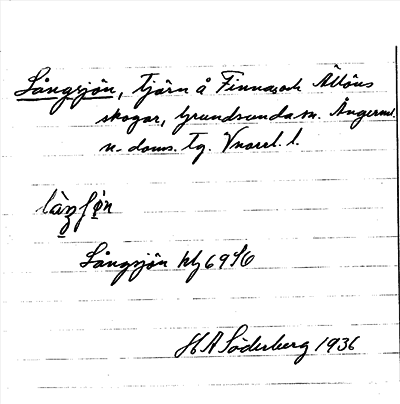 Långsjön, tjärn å Finnas och Ältöns
skogar, Grundsunda sn. Ångerml.
n. doms. Tg. Vnorrl. l.
Långsjön
H A Söderberg 1936